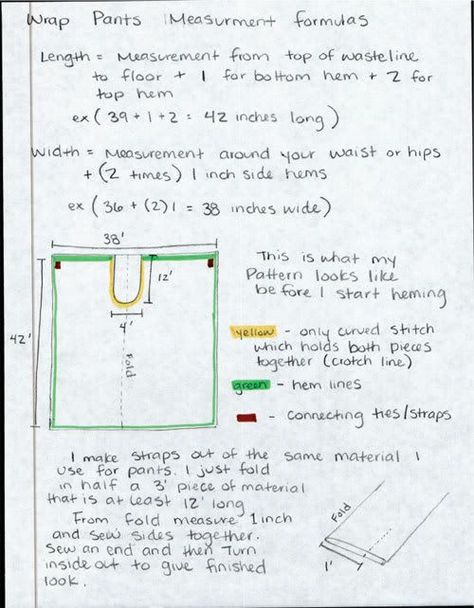 Wrap Pants | Measurment formulas
Length = Measurement from top of wasteline
to floor + 1 for bottom hem + 2 for
top hem
ex ( 39 + 1 + 2 = 42 inches long )
Width = Measurement around your waist or hips
+ (2 times) 1 inch side hems
ex ( 36 + (2) 1 = 38 inches wide )
38'
12'
4'
42'
Fold
This is what my
Pattern looks like
before I start heming
yellow - only curved stitch
which holds both pieces
together (crotch line)
green - hem lines
- connecting ties/straps
I make straps out of the same material I
use for pants. I just fold
in half a 3' piece of material
that is at least 12' long
From fold measure 1 inch
and sew sides together.
Sew an end and then turn
inside out to give finished
look.
Fold
1'